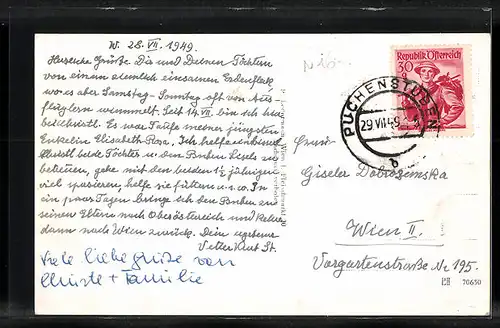 W. 28. VII. 1949.
Herzliche Grüße Dir und Deinen Töchtern
von einem ziemlich einsamen
wo es aber Samstag-Sonntag oft von Aus-
flüglern wimmelt. Seit 14. VII. bin ich hier
beschäftigt. Es war Taufe meiner jüngsten
Enkelin Elisabeth Rosa, Ich helfe
beide Töchter u. den Buben
betreuen, gehe mit den beiden 1½ jährigen
viel spazieren, helfe sie füttern u.s.w. In
ein paar Tagen bringe ich den Buben zu
seinen Eltern nach Oberösterreich und kehre
dann nach Wien zurück. Dein ergebener
Vetter Kurt St.
viele liebe Grüße von
Christe + Familie
Republik Österreich
30
PUCHENSTUBEN
29 VII 49
b
Gisela Dobrozemska
Wien II.
Vorgartenstraße Nr 195.
70650